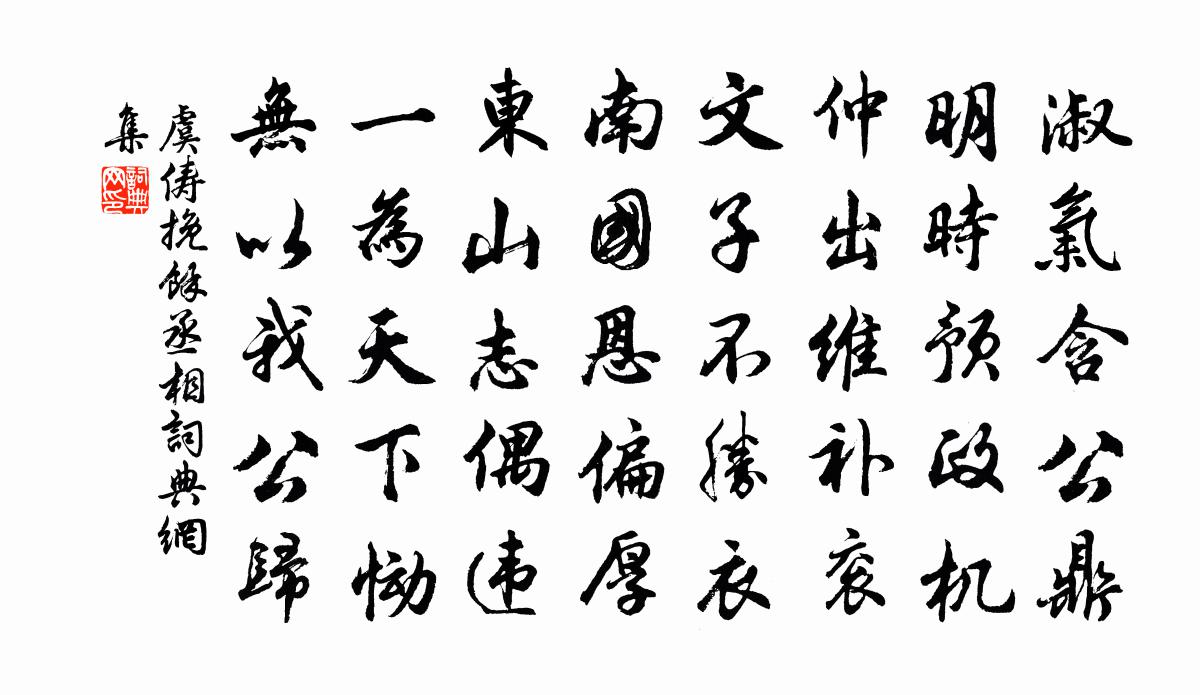 淑氣含公鼎
明時預政机
仲出維补衮
文子不勝衣
南國恩偏厚
東山志偶违
一為天下慟
無以我公歸
虞儔挽餘丞相詞典網
集
詞典
网印